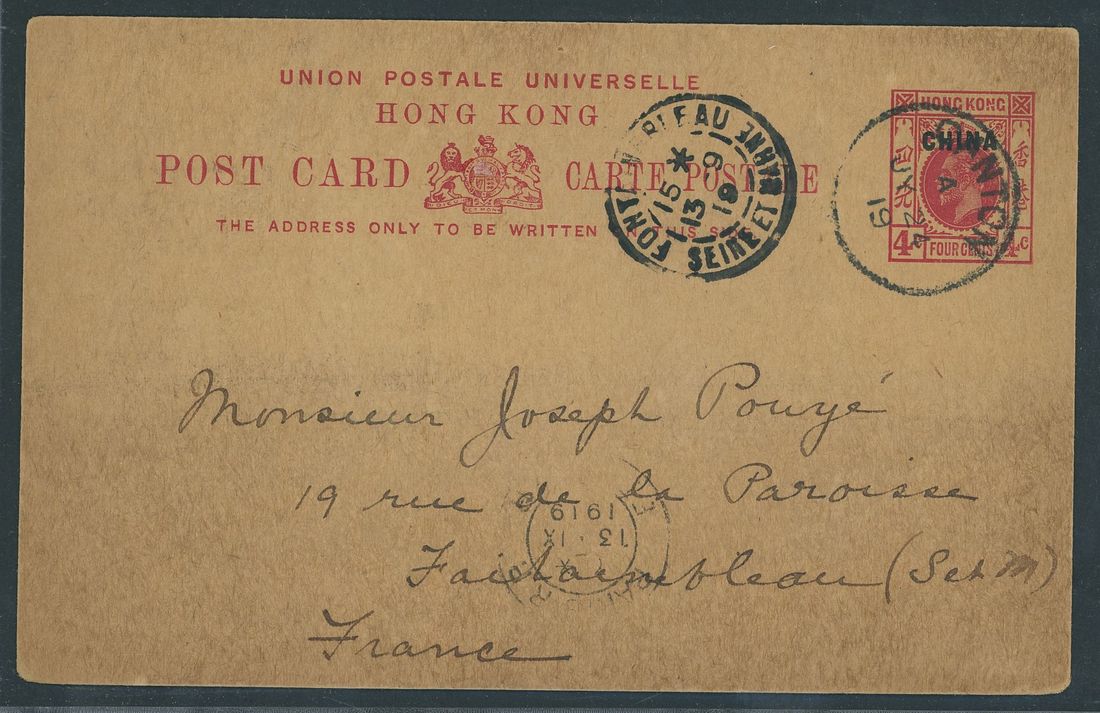 UNION POSTALE UNIVERSELLE
HONG KONG
POST CARD CARTE POSTALE
THE ADDRESS ONLY TO BE WRITTEN THIS
HONG KONG
CHINA
4 FOUR CENTS
CANTON
A
19
FONT BLEAU
SEINE ET MARNE
*
15
13 - 9
19
Monsieur Joseph Pouyé
19 rue de la Paroisse
Fontainebleau (S et M)
France
1919
13 · IX